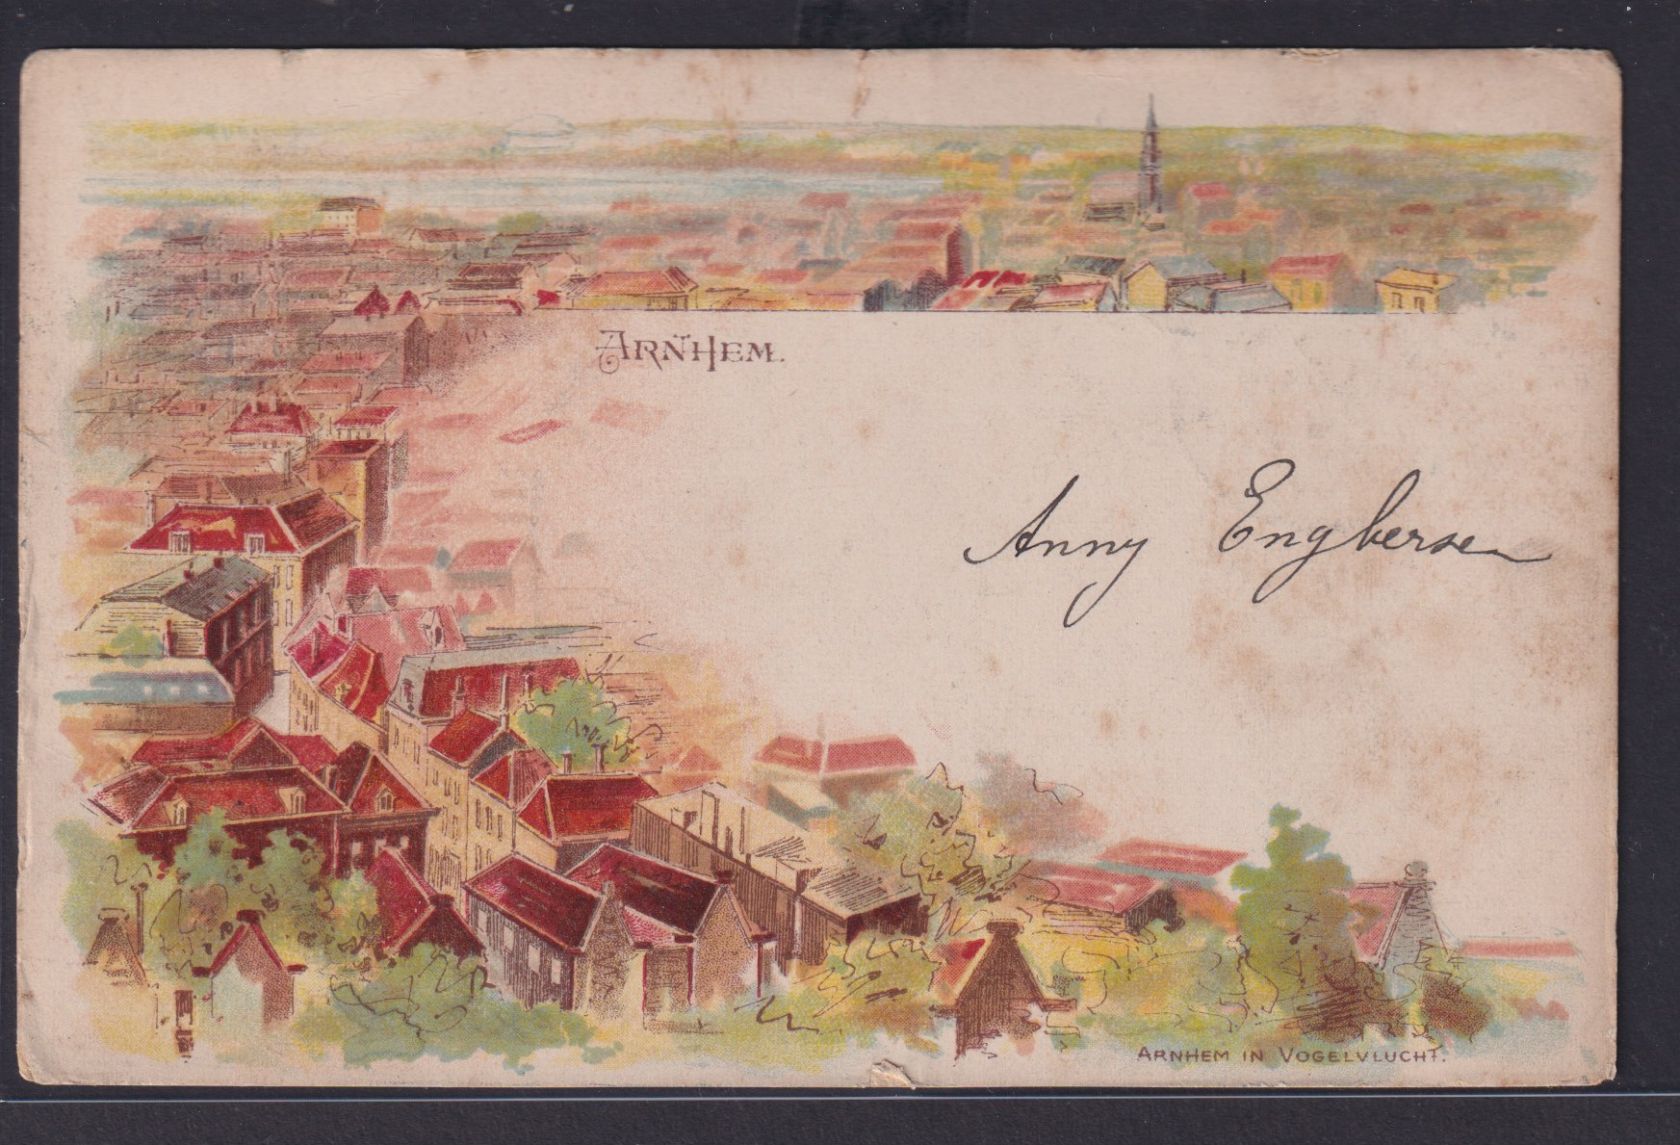 ARNHEM.
Anny Engbersen
ARNHEM IN VOGELVLUCHT.